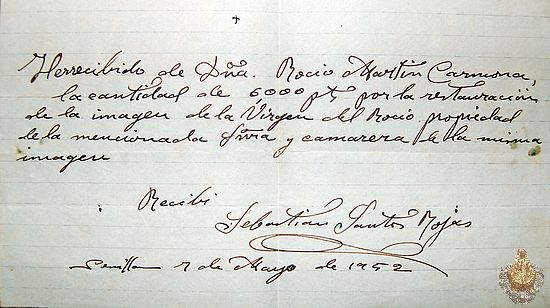 +
Herrecibido de Dña. Rocio Martin Carmona,
la cantidad de 6000 pts por la restauración
de la imagen de la Virgen del Rocio, propiedad
de la mencionada Sñra y camarera de la misma
imagen
Recibi
Sebastian Santos Rojas
Sevilla 7 de Mayo de 1952